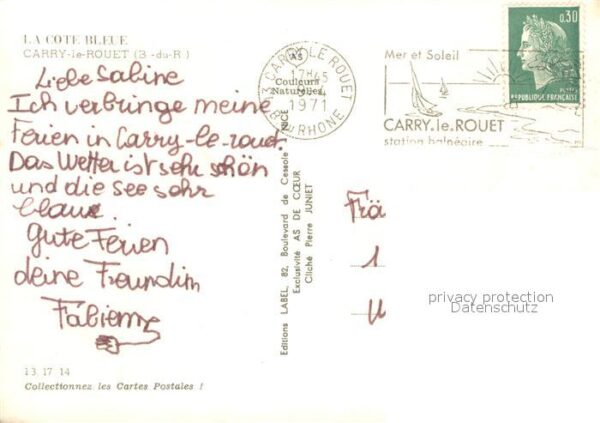 LA COTE BLEUE
CARRY-le-ROUET (B.-du-R.)
Liebe Sabine
Ich verbringe meine
Ferien in Carry-le-rouet.
Das Wetter ist sehr schön
und die See sehr
blaue.
Gute Ferien
deine Freundin
Fabienne
13 17 14
Collectionnez les Cartes Postales !
Couleurs
Naturelles
13 CARRY LE ROUET
17H45
1971
BDU RHONE
Editions LABEL, 82, Boulevard de Cessole - NICE
Exclusivité AS DE CŒUR
Cliché Pierre JUNIET
Mer et Soleil
CARRY.le.ROUET
station balnéaire
0,30
POSTES
REPUBLIQUE FRANÇAISE
Frä
1
U
privacy protection
Datenschutz